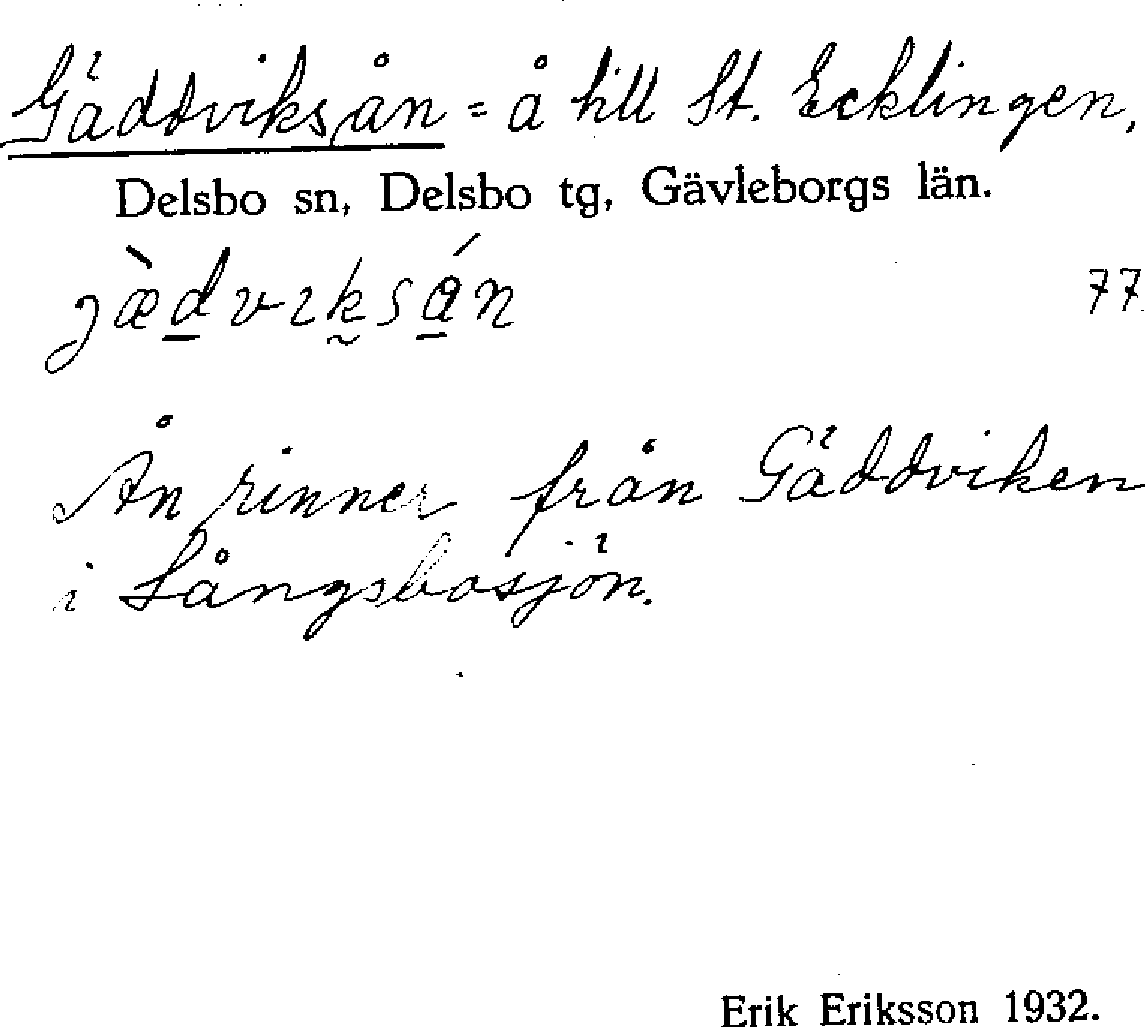 Gäddviksån = å till St. Ecklingen,
Delsbo sn, Delsbo tg, Gävleborgs län.
jæ̀dvıksán
77
Ån rinner från Gäddviken
i Långsbosjön.
Erik Eriksson 1932.